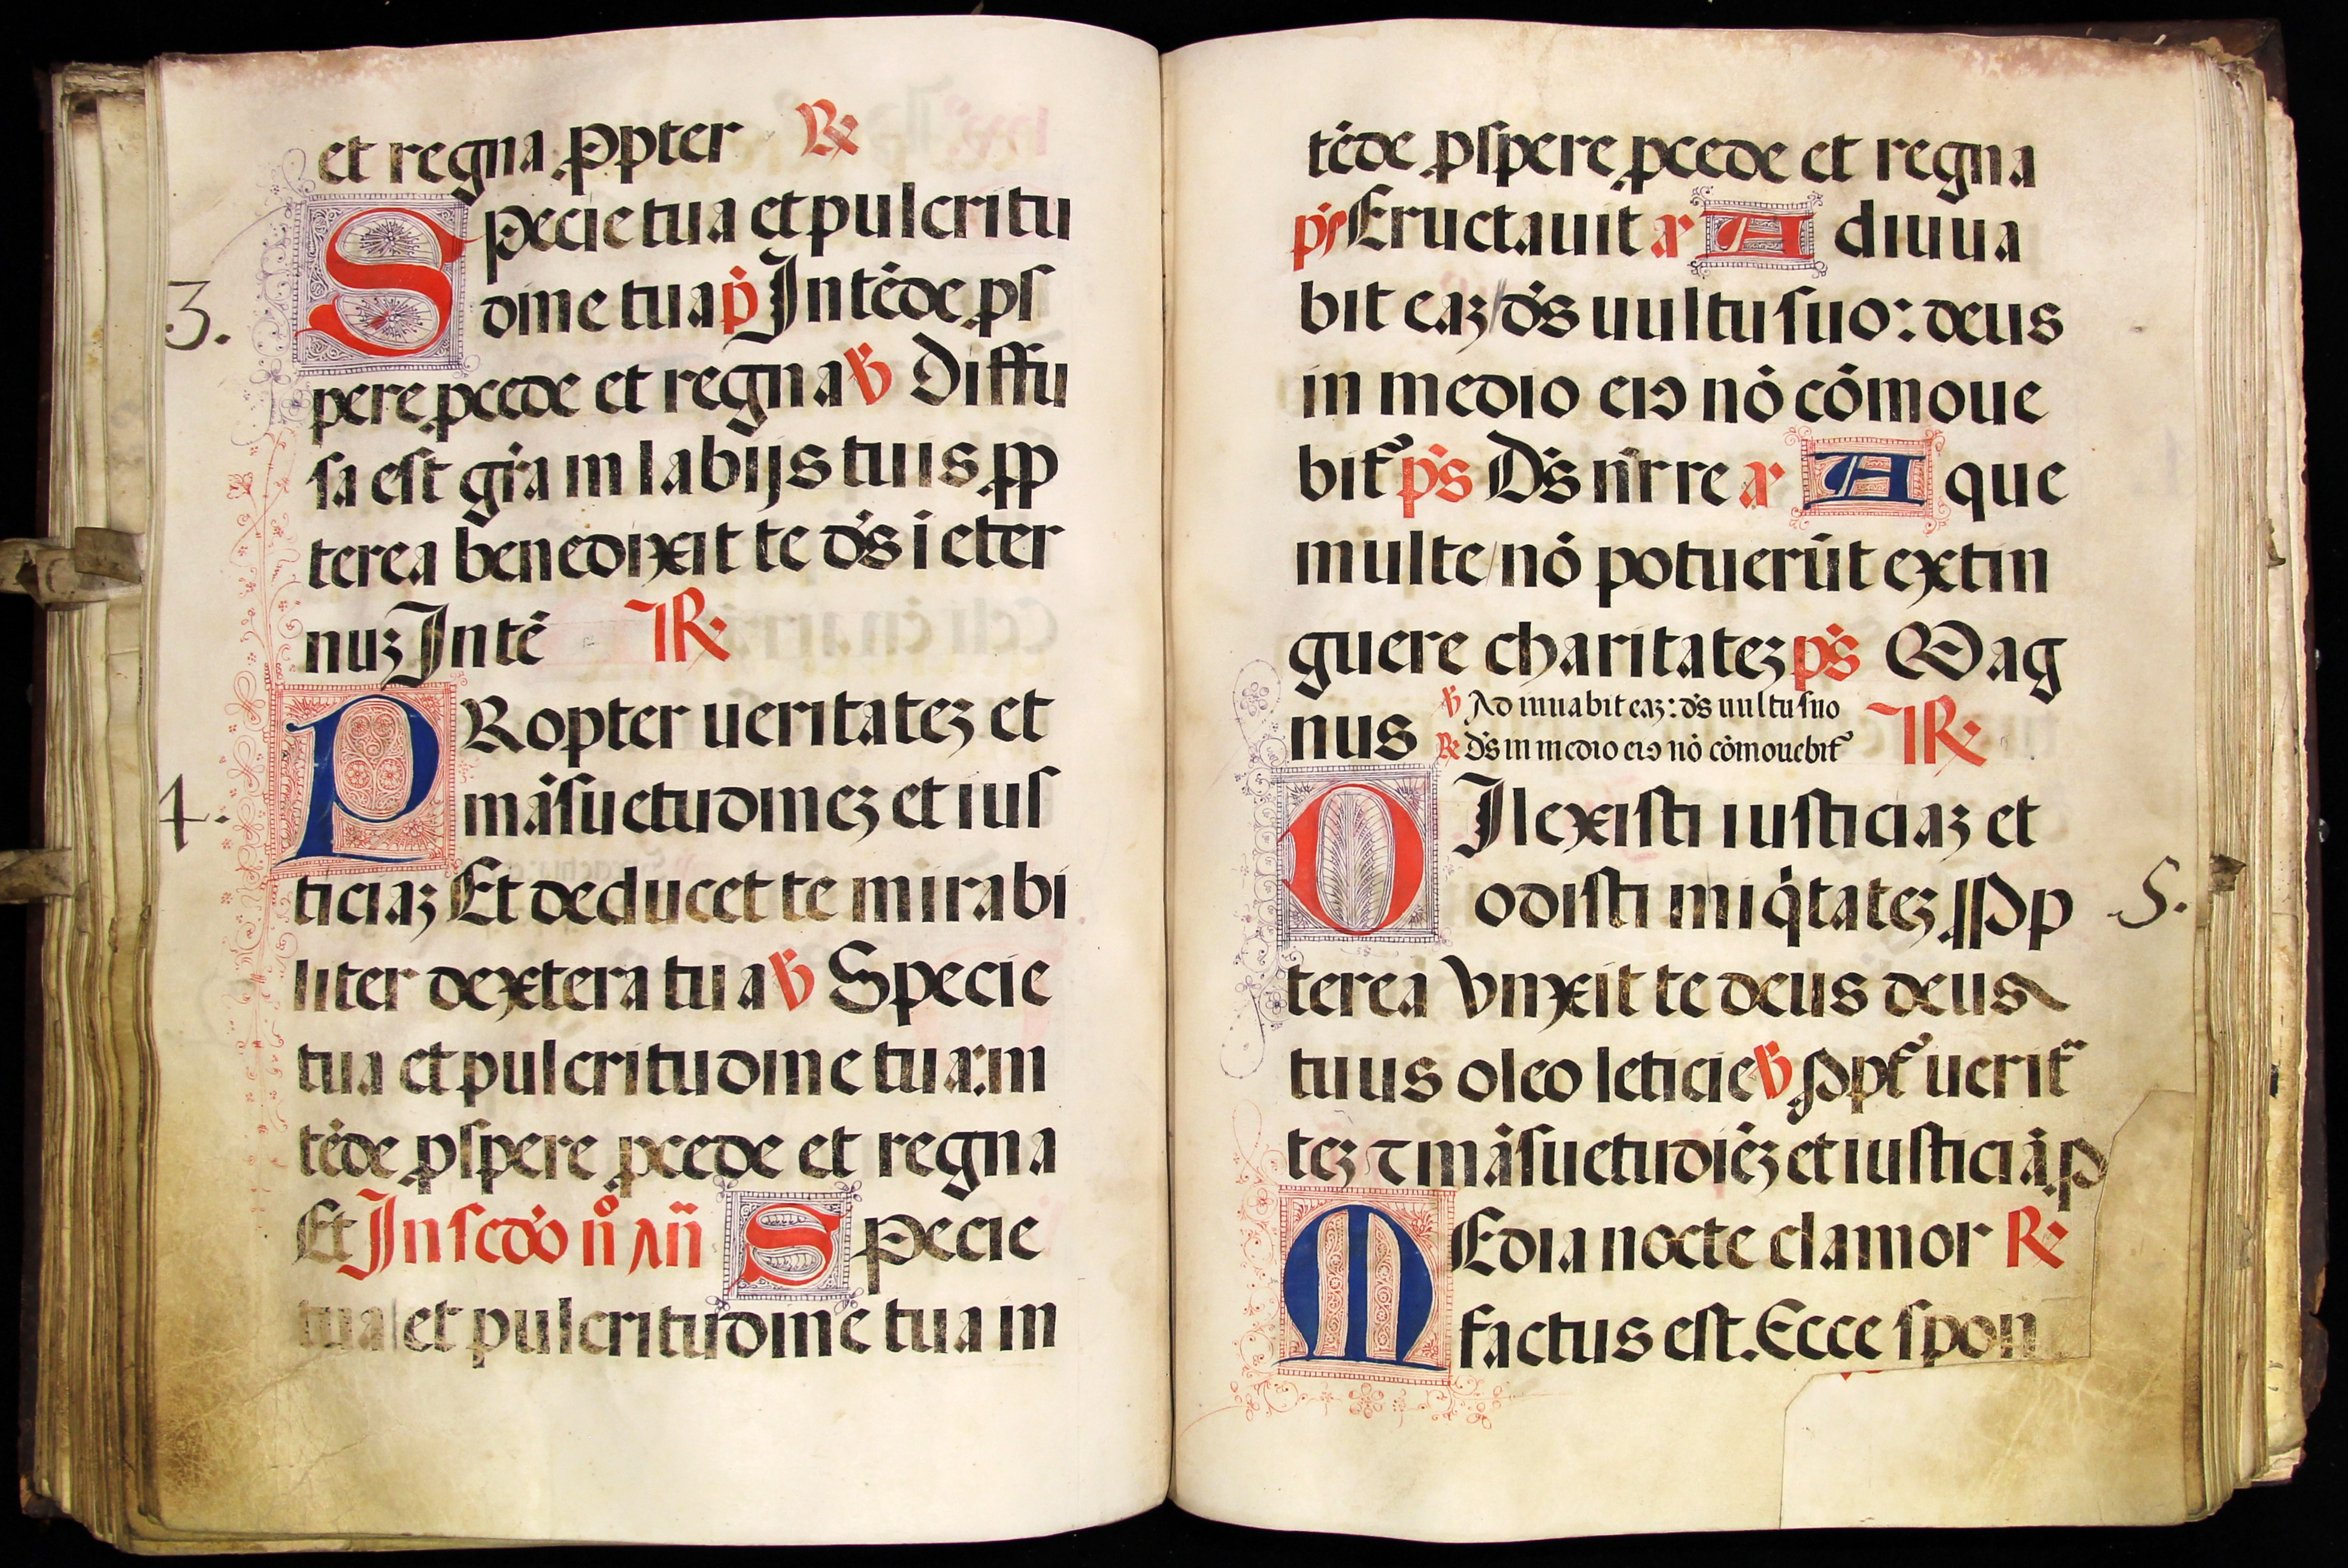 et regna ꝓpter ℟
Specie tua et pulcritu
dine tua p̄ Intēde ꝓſ
3.
pere ꝓcede et regna ℣ Diffu
sa eſt gr̄a in labijs tuis ꝓp
terea benedixit te dn̄s ī eter
nuꝫ Intē ℟
PRopter ueritateꝫ et
māſuetudineꝫ et iuſ
4.
ticiaꝫ Et deducet te mirabi
liter dextera tua ℣ Specie
tua et pulcritudine tua: in
tēde ꝓſpere ꝓcede et regna
Et In ſcd̄o n̊ an̄ Specie
tua et pulcritudine tua in
tēde ꝓſpere ꝓcede et regna
ps̄ Eructauit an̄ Adiuua
bit eaꝫ/ ds̄ uultu ſuo: deus
in medio eiꝰ nō cōmoue
bit᷑ ps̄ Ds̄ nr̄ re an̄ Aque
multe/ nō potuerūt extin
guere charitateꝫ ps̄ Mag
nus ℣ Adiuuabit eaꝫ: ds̄ uultu ſuo ℟
℟ ds̄ in medio eiꝰ nō cōmouebit᷑
DIlexiſti iuſticiaꝫ et
odiſti iniq̇tateꝫ/ Ꝓp
5.
terea vnxit te deus deus
tuus oleo leticie ℣ Ꝓpt᷑ uerit᷑
teꝫ ⁊ māſuetudiēꝫ et iuſticiā ꝓ
MEdia nocte clamor ℟
factus eſt. Ecce ſpon